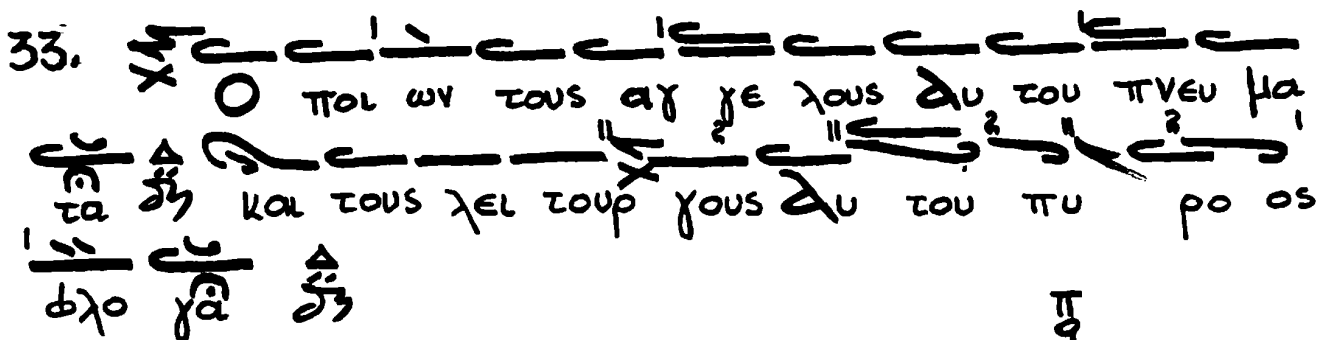 33. Ο ποι ων τους αγ γε λους αυ του πνευ μα
τα Δ και τους λει τουρ γους αυ του πυ ρο ος
φλο γα Δ π